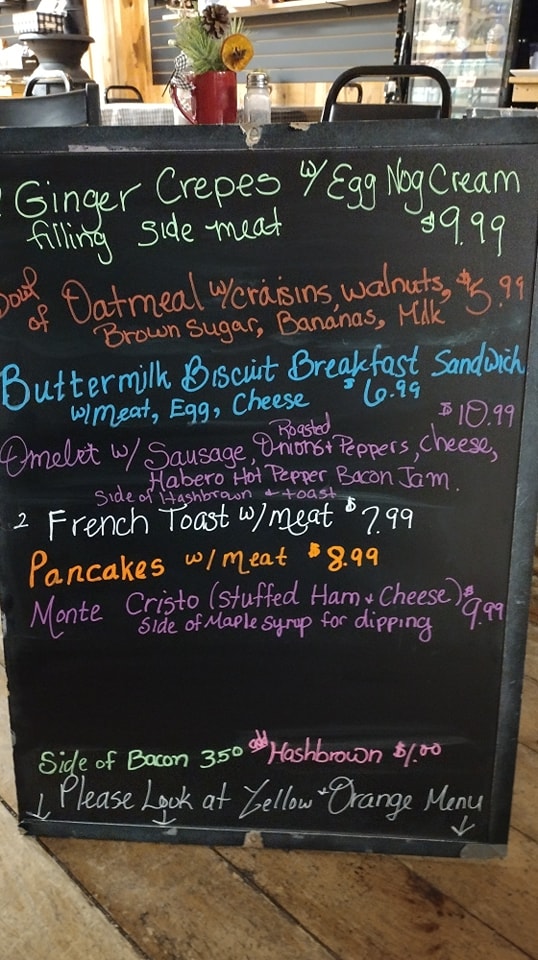 Ginger Crepes w/ Egg Nog Cream
filling side meat $9.99
Bowl of Oatmeal w/craisins, walnuts, $5.99
Brown Sugar, Bananas, Milk
Buttermilk Biscuit Breakfast Sandwich
w/meat, Egg, Cheese $6.99
$10.99
Omelet w/ Sausage, Roasted Onions + Peppers, cheese,
Habero Hot Pepper Bacon Jam.
Side of Hashbrown + toast
2 French Toast w/meat $7.99
Pancakes w/meat $8.99
Monte Cristo (Stuffed Ham + Cheese) $9.99
Side of Maple Syrup for dipping
Side of Bacon 3.50 add Hashbrown $1.00
Please Look at Yellow + Orange Menu